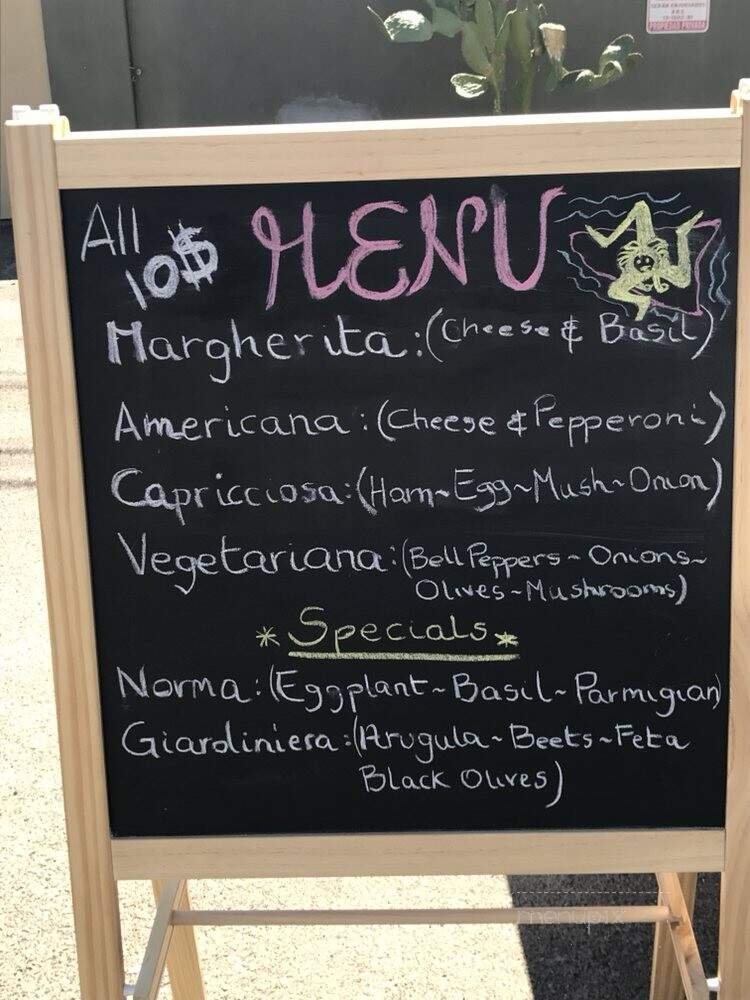 PROPIEDAD PRIVADA
All
10$
MENU
Margherita:(Cheese & Basil)
Americana:(Cheese & Pepperoni)
Capricciosa:(Ham~Egg~Mush~Onion)
Vegetariana:(Bell Peppers~Onions~
Olives~Mushrooms)
*Specials*
Norma:(Eggplant~Basil~Parmigian)
Giardiniera:(Arugula~Beets~Feta
Black Olives)
menupix